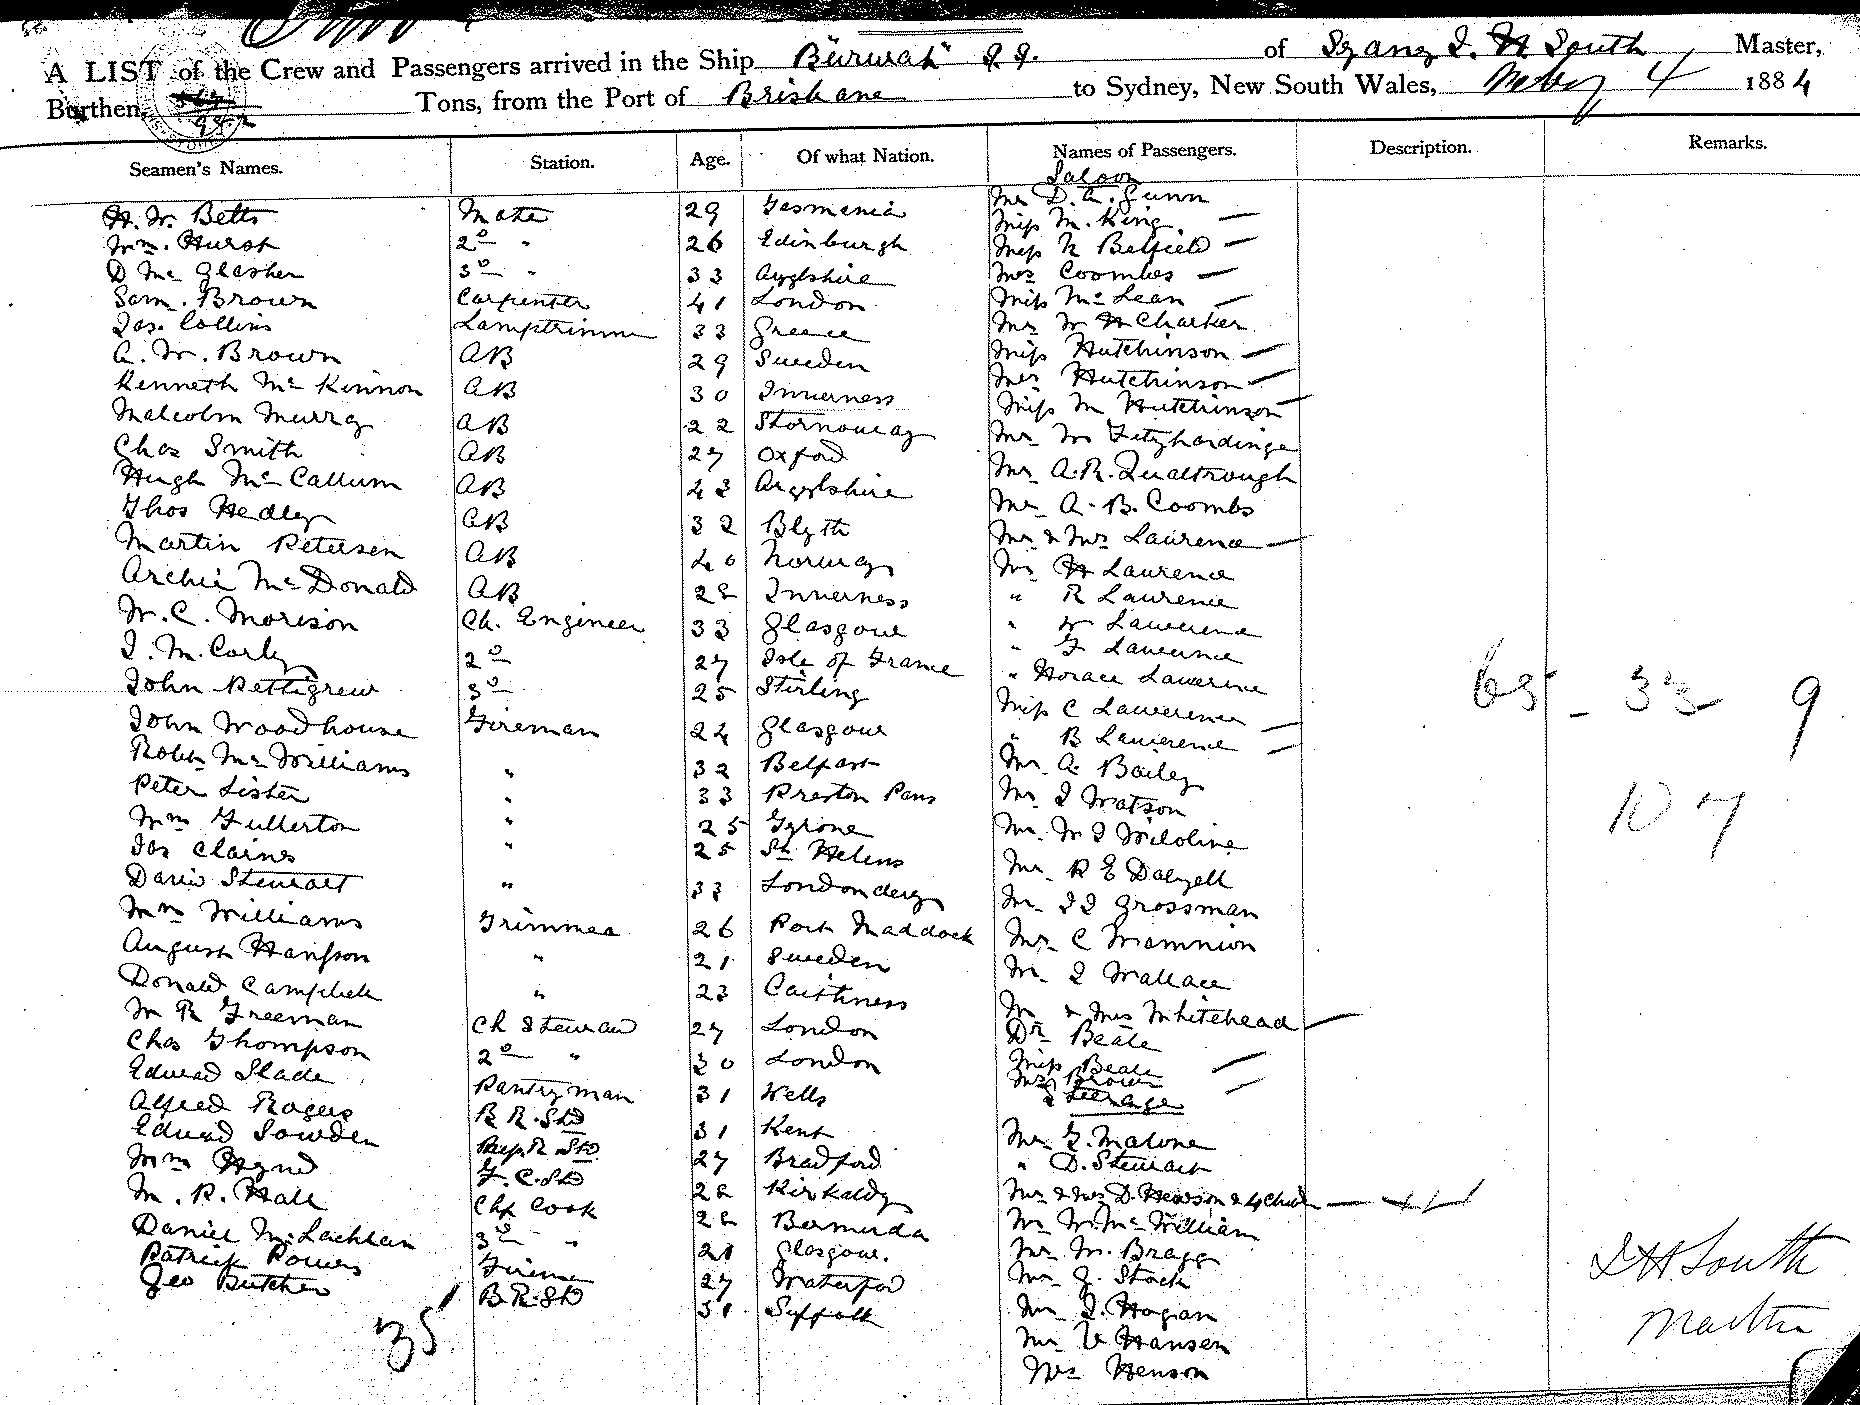 A LIST of the Crew and Passengers arrived in the Ship "Burwah" S.S. of Sydney J. H South Master,
Burthen, 982 Tons, from the Port of Brisbane to Sydney, New South Wales, 4 1884
Seamen's Names. Station. Age. Of what Nation. Names of Passengers. Description. Remarks.
Saloon
H. W. Betts Mate 29 Tasmania Mr D. A. Gunn
Wm. Hurst 2d " 26 Edinburgh Miss M. King —
D Mc Glashen 3d " 33 Argylshire Miss N Belfield —
Sam. Brown Carpenter 41 London Mrs Coombes —
Jas. Collins Lamptrimmer 33 Greece Miss McLean —
A. W. Brown AB 29 Sweden Mr W H Charker
Kenneth McKinnon AB 30 Inverness Miss Hutchinson —
Malcolm Murray AB 22 Stornoway Mrs Hutchinson —
Chas Smith AB 27 Oxford Miss M Hutchinson —
Hugh McCallum AB 43 Argylshire Mr W Fitzhardinge
Thos Hedley AB 32 Blyth Mr A. R. Qualtrough
Martin Petersen AB 40 Norway Mr A. B. Coombs
Archie McDonald AB 28 Inverness Mr & Mrs Laurence —
W. C. Morison Ch. Engineer 33 Glasgow Mr H Laurence
J. M. Corley 2d 27 Isle of France " R Laurence
John Pettigrew 3d 25 Stirling " W Lawrence
John Woodhouse Fireman 24 Glasgow " F Lawrence
Robt McWilliams " 32 Belfast " Horace Lawrence
Peter Lister " 33 Preston Pans Miss C Lawrence —
Wm Fullerton " 25 Tyrone " B Lawrence —
Jas Clarins " 25 St. Helens Mr A. Bailey
David Stewart " 33 Londonderry Mr J Watson
Wm Williams Trimmer 26 Port Maddock Mr W J Wildline
August Hansson " 21 Sweden Mr R E Dalyell
Donald Campbell " 23 Caithness Mr J J Grossman
W R Freeman Ch Steward 27 London Mr C Mamnion
Chas Thompson 2d " 30 London Mr J Wallace
Edward Slade Pantryman 31 Wells Mr & Mrs Whitehead —
Alfred Rogers B R. Std 31 Kent Dr Beale
Edward Sowden Std 27 Bradford Miss Beale —
Wm Hynd F. C. Std 28 Kirkaldy Mrs Brown —
W. R. Hall Chf Cook 28 Bermuda Steerage
Daniel McLachlan 3d " 21 Glasgow. Mr G. Malone
Patrick Power Fireman 27 Waterford " D. Stewart
Geo Butcher B. R. Std 31 Suffolk Mr & Mrs D. Hewson & 4 Child —
Mr W. McWilliam
Mr W. Bragg
Mr J. Stock
Mr J. Hogan
Mr V Hansen
Mrs Henson
35
65 - 33 9
10 7
J H. South
Master